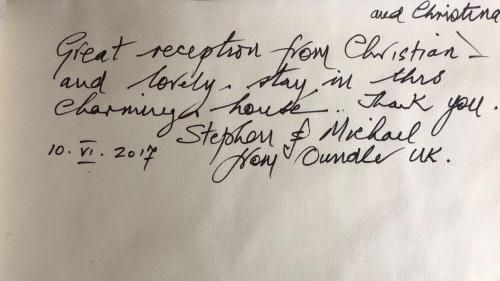 and Christina
Great reception from Christian
and lovely stay in this
charming house. Thank you.
Stephen & Michael
10. VI. 2017 from Oundle UK.